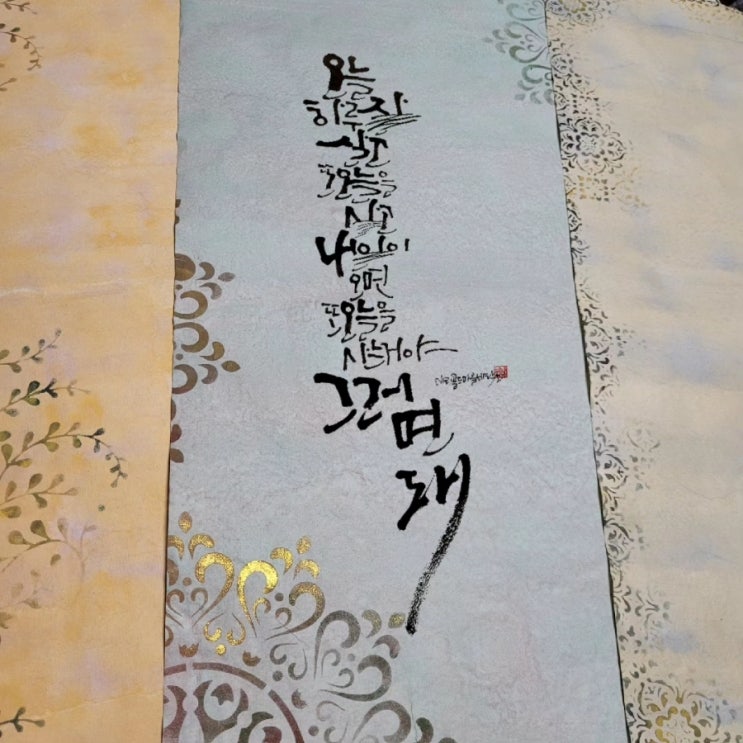 오늘
하루 잘
살고
또 오늘을
살고
내일이
오면
또 오늘을
그러면
돼